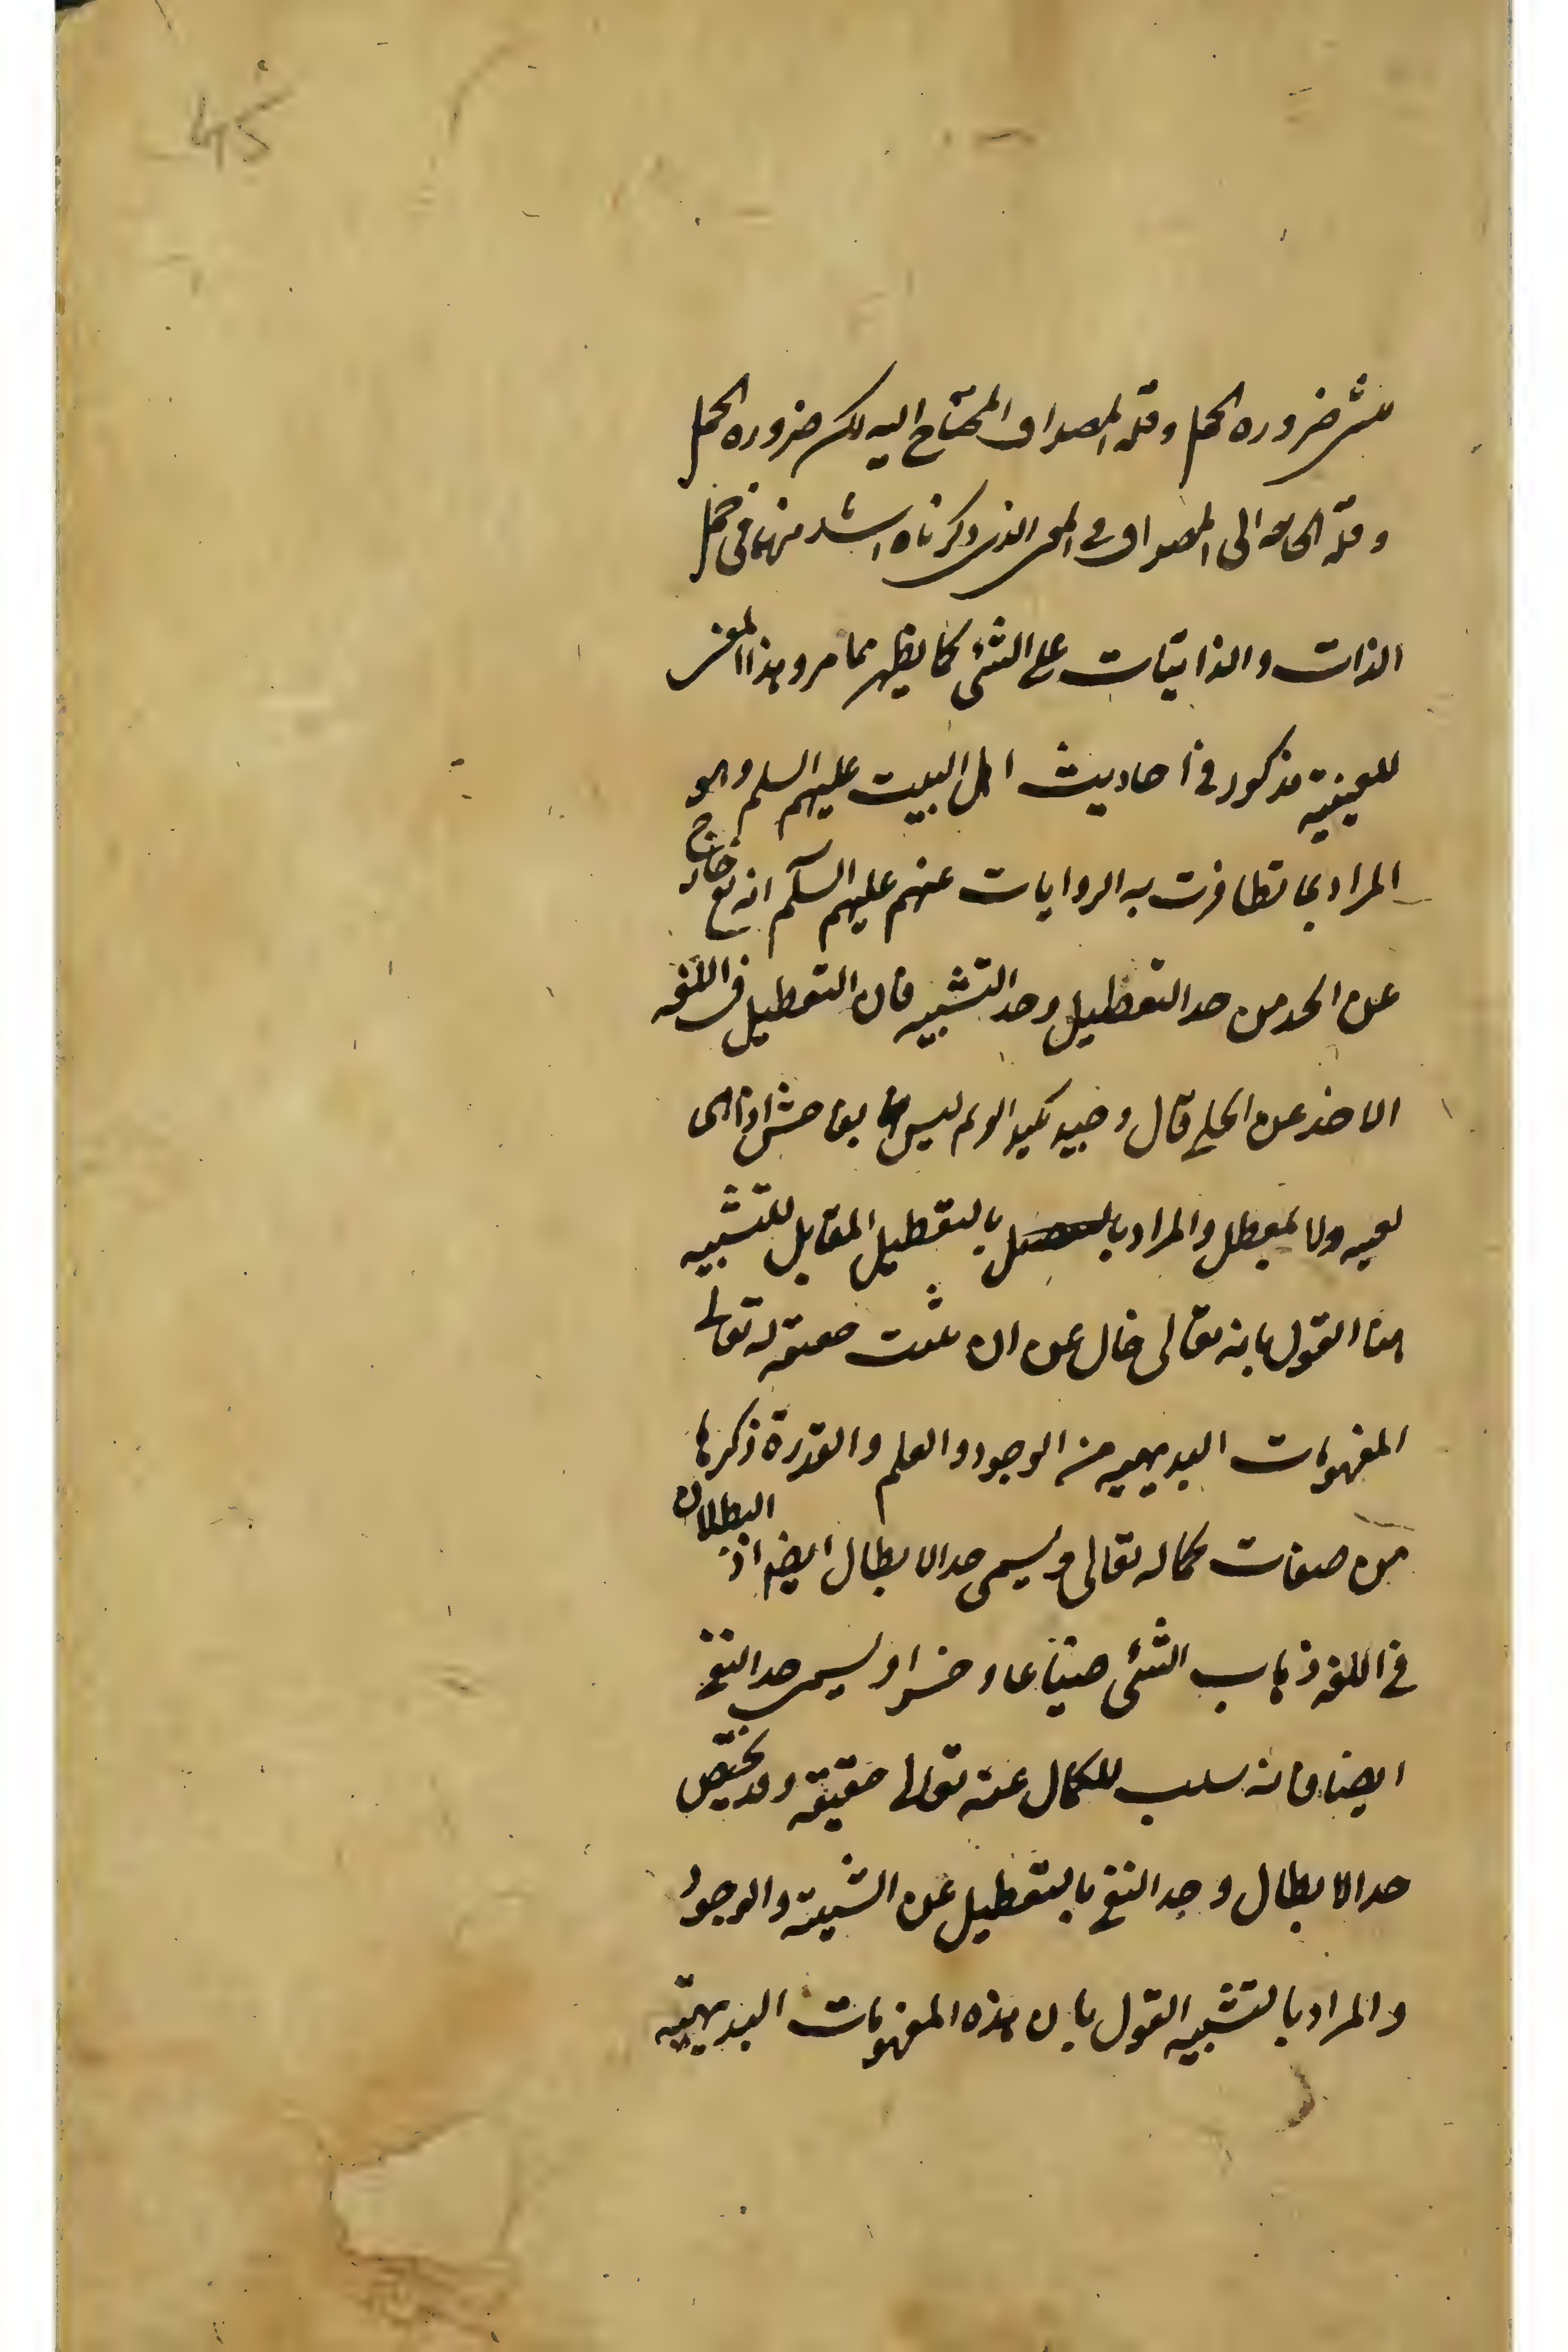 45
ضروره الحمل وقلة المصداق المحتاج اليه لكن ضروره الحمل
وقلة الحاجه الى المصداق فى المعنى الذى ذكرناه اشد منها فى حمل
الذات والذاتيات على الشئ كما يظهر مما مر وهذا المعنى
للعينية مذكور فى احاديث اهل البيت عليهم السلم وهو
المراد بما تظافرت به الروايات عنهم عليهم السلم انه تع خارج
عن الحد من حد التعطيل وحد التشبيه فان التعطيل فى اللغه
الاخذ عن الحلى قال وجيد كجيد الريم ليس بفاحش اذا هى
نصته ولا بمعطل والمراد بالتعطيل المقابل للتشبيه
هنا القول بانه تعالى خال عن ان يثبت حقيقة له تعالى
المفهومات البديهيه من الوجود والعلم والقدرة ذكرها
من صفات كماله تعالى ويسمى حد الابطال ايضا اذ البطلان
فى اللغه ذهاب الشئ ضياعا وخسرا ويسمى حد النفى
ايضا فانه سلب للكمال عنه تعالى حقيقه وقد يختص
حد الابطال وحد النفى بالتعطيل عن الشيئية والوجود
والمراد بالتشبيه القول بان هذه المفهومات البديهيه